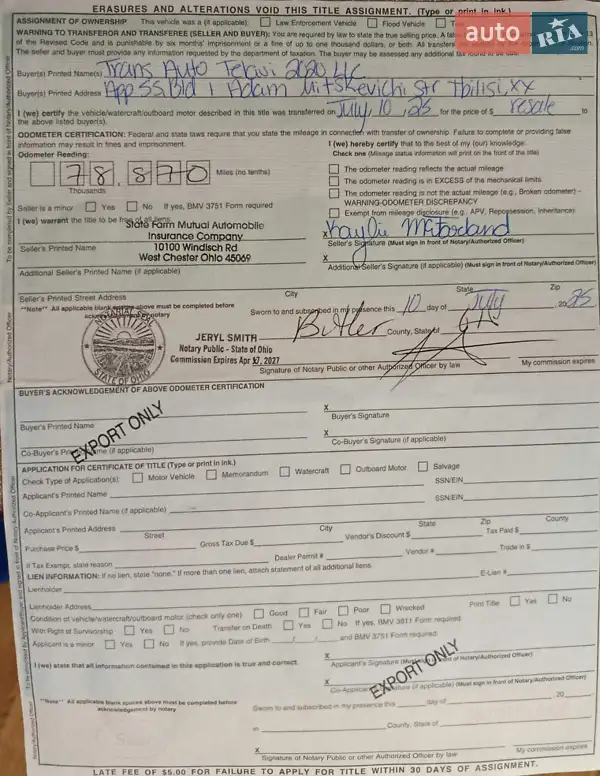 ERASURES AND ALTERATIONS VOID THIS TITLE ASSIGNMENT. (Type or print in ink.)
ASSIGNMENT OF OWNERSHIP This vehicle was a (if applicable): Law Enforcement Vehicle Flood Vehicle
auto RIA.com
WARNING TO TRANSFEROR AND TRANSFEREE (SELLER AND BUYER): You are required by law to state the true selling price. A false
of the Revised Code and is punishable by six months' imprisonment or a fine of up to one thousand dollars, or both. All transfers
The seller and buyer must provide any information requested by the department of taxation. The buyer may be assessed any additional tax found to be due.
Buyer(s) Printed Name(s) Trans Auto Telavi 2020 LLC
Buyer(s) Printed Address App 55, Bld 1 Adam Mitskevichi Str Tbilisi, xx
I (we) certify the vehicle/watercraft/outboard motor described in this title was transferred on July, 10, 25 for the price of $ resale to
the above listed buyer(s).
ODOMETER CERTIFICATION: Federal and state laws require that you state the mileage in connection with transfer of ownership. Failure to complete or providing false
information may result in fines and imprisonment.
I (we) hereby certify that to the best of my (our) knowledge:
Odometer Reading:
Check one (Mileage status information will print on the front of the title)
78,870 Miles (no tenths)
Thousands
The odometer reading reflects the actual mileage
The odometer reading is in EXCESS of the mechanical limits.
The odometer reading is not the actual mileage (e.g., Broken odometer) -
WARNING-ODOMETER DISCREPANCY
Exempt from mileage disclosure (e.g., APV, Repossession, Inheritance)
Seller is a minor Yes No If yes, BMV 3751 Form required
I (we) warrant the title to be free of all liens.
State Farm Mutual Automobile
Insurance Company
10100 Windisch Rd
West Chester Ohio 45069
Seller's Printed Name
X Kaylie McFarland
Seller's Signature (Must sign in front of Notary/Authorized Officer)
X
Additional Seller's Printed Name (if applicable)
Additional Seller's Signature (if applicable) (Must sign in front of Notary/Authorized Officer)
Seller's Printed Street Address City State Zip
**Note** All applicable blank spaces above must be completed before
acknowledgement by notary
Sworn to and subscribed in my presence this 10 day of July 2025
NOTARIAL SEAL
STATE OF OHIO
JERYL SMITH
Notary Public - State of Ohio
Commission Expires Apr 17, 2027
Butler County, State of OH
Signature of Notary Public or other Authorized Officer by law
My commission expires
BUYER'S ACKNOWLEDGEMENT OF ABOVE ODOMETER CERTIFICATION
X
Buyer's Printed Name
Buyer's Signature
X
Co-Buyer's Printed Name (if applicable)
Co-Buyer's Signature (if applicable)
EXPORT ONLY
APPLICATION FOR CERTIFICATE OF TITLE (Type or print in ink.)
Check Type of Application(s): Motor Vehicle Memorandum Watercraft Outboard Motor Salvage
Applicant's Printed Name SSN/EIN
Co-Applicant's Printed Name (if applicable) SSN/EIN
Applicant's Printed Address
Street City State Zip County
Purchase Price $ Gross Tax Due $ Vendor's Discount $ Tax Paid $
If Tax Exempt, state reason Dealer Permit # Vendor # Trade in $
LIEN INFORMATION: If no lien, state "none." If more than one lien, attach statement of all additional liens.
E-Lien #
Lienholder
Lienholder Address
Condition of vehicle/watercraft/outboard motor (check only one) Good Fair Poor Wrecked Print Title Yes No
With Right of Survivorship Yes No Transfer on Death Yes No If yes, BMV 3811 Form required
Applicant is a minor Yes No If yes, provide Date of Birth / / and BMV 3751 Form required
I (we) state that all information contained in this application is true and correct.
X
Applicant's Signature (Must sign in front of Notary/Authorized Officer)
X
Co-Applicant's Signature (if applicable) (Must sign in front of Notary/Authorized Officer)
EXPORT ONLY
**Note** All applicable blank spaces above must be completed before
acknowledgement by notary
Sworn to and subscribed in my presence this day of , 20
in County, State of
X
Signature of Notary Public or other Authorized Officer by law
My commission expires
LATE FEE OF $5.00 FOR FAILURE TO APPLY FOR TITLE WITHIN 30 DAYS OF ASSIGNMENT.